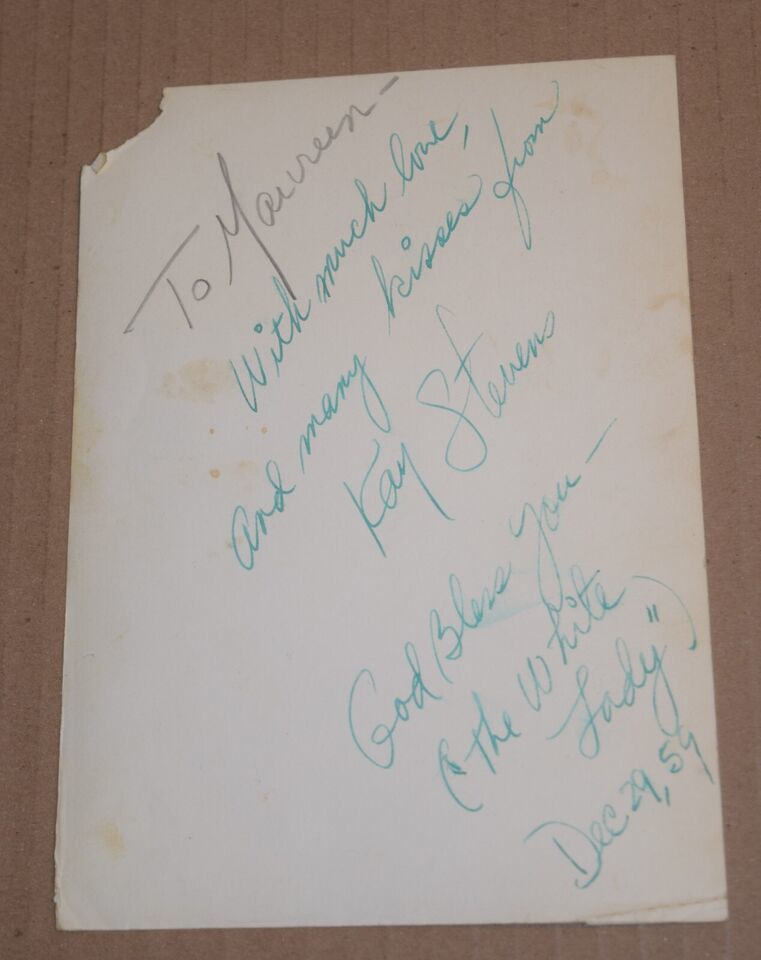 To Maureen -
With much love,
and many kisses from
Kay Stevens
God Bless you -
("The White
Lady")
Dec 29, 59